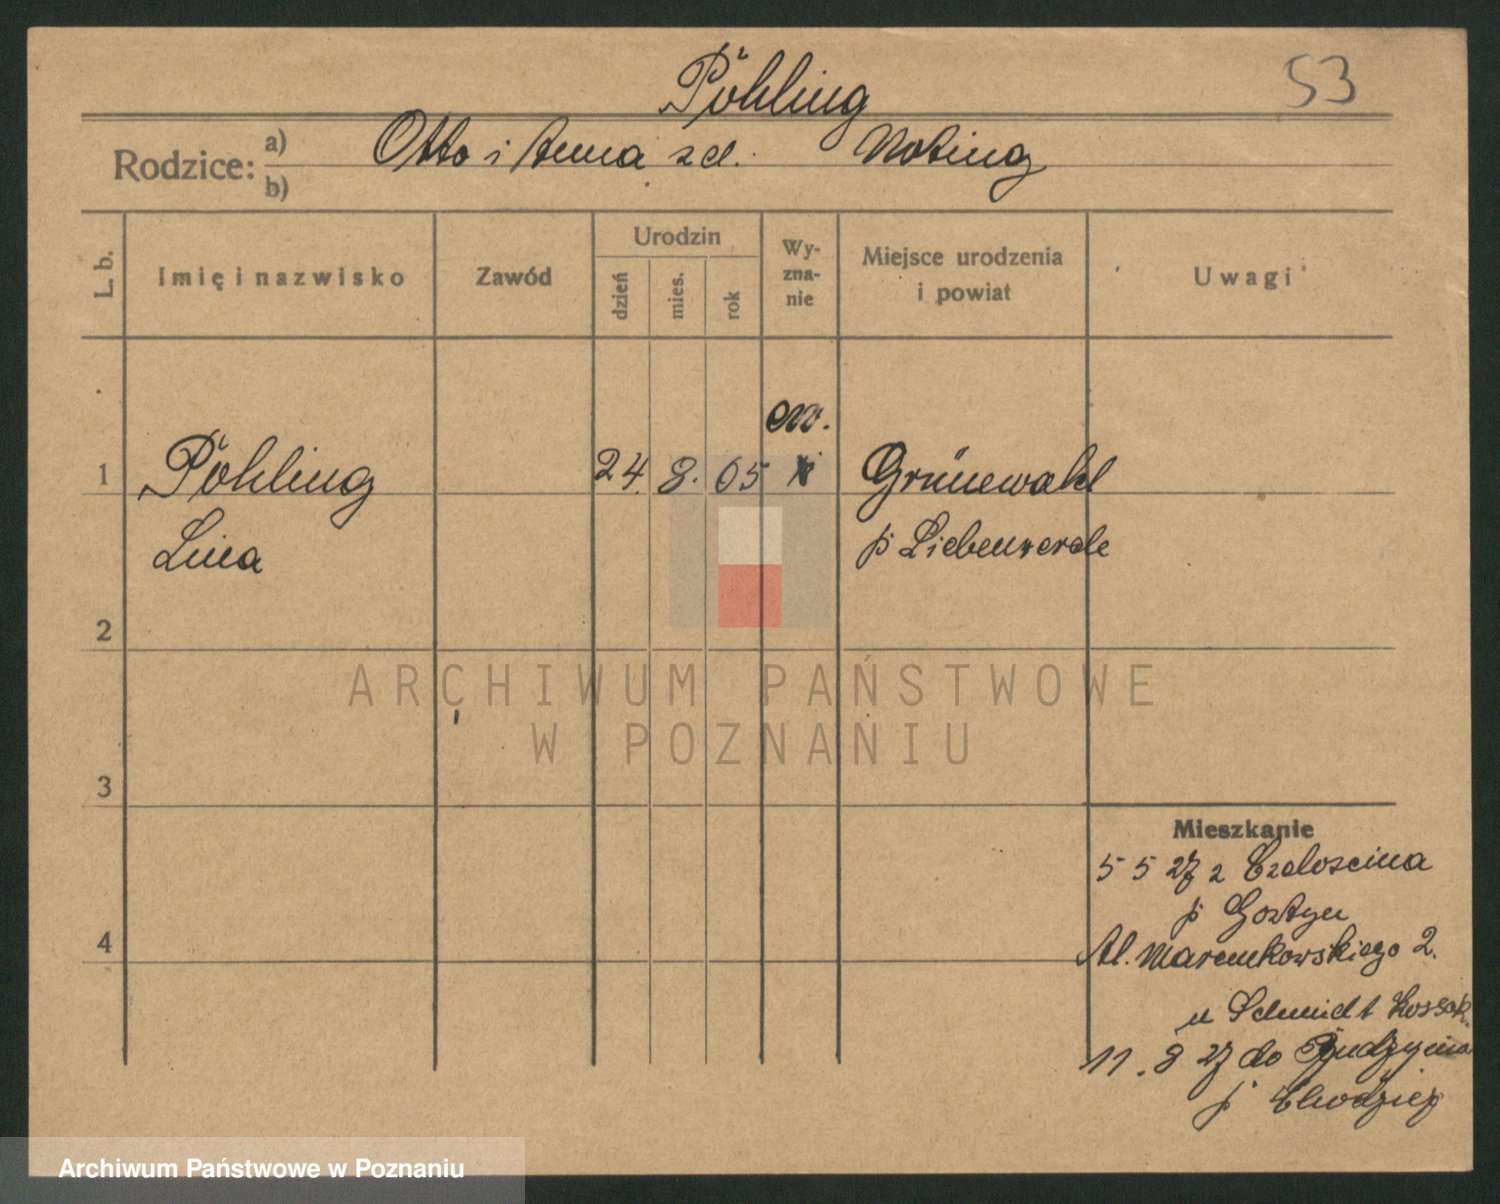 Pöhling
53
Rodzice: a) Otto i Anna zd. Noting
b)
L. b.
Imię i nazwisko
Zawód
Urodzin
dzień
mies.
rok
Wy-
zna-
nie
Miejsce urodzenia
i powiat
Uwagi
ew.
1 Pöhling 24. 8. 05 Grünewald
Lina p Liebenwerde
2
ARCHIWUM PAŃSTWOWE
W POZNANIU
3
Mieszkanie
5 5 27 z
p Gostyn
4
Al. Marcinkowskiego 2.
u Schmidt Kossak.
11. 8 27 do
p Chodzież
Archiwum Państwowe w Poznaniu